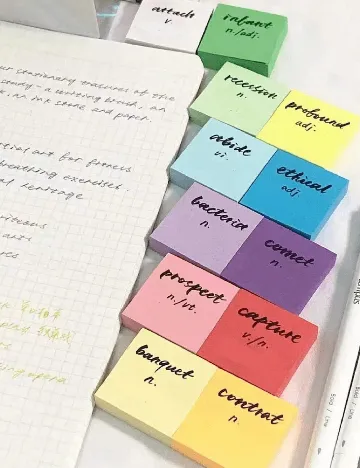 attach
v.
infant
n./adj.
recession
n.
profound
adj.
abide
vi.
ethical
adj.
bacteria
n.
comet
n.
prospect
n./vt.
capture
v./n.
banquet
n.
contrat
n.
ur stationary treasures of the
study - a writing brush, an
an ink stone and paper.
art for fitness
breathing exercises.
heritage